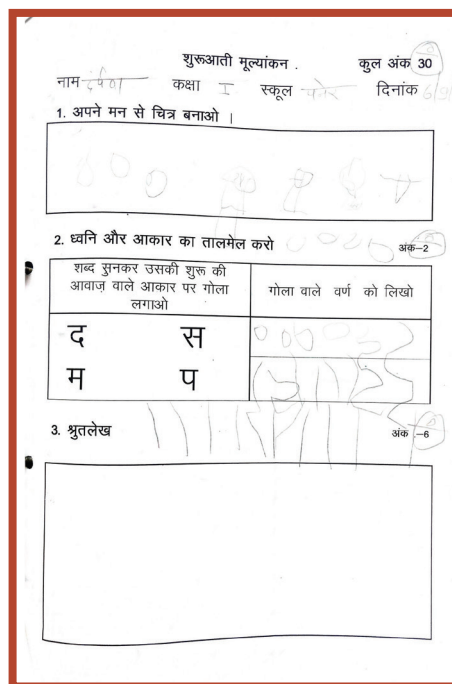 शुरूआती मूल्यांकन . कुल अंक 30
नाम कक्षा I स्कूल दिनांक
1. अपने मन से चित्र बनाओ ।
2. ध्वनि और आकार का तालमेल करो अंक–2
शब्द सुनकर उसकी शुरू की
आवाज़ वाले आकार पर गोला
लगाओ
गोला वाले वर्ण को लिखो
द स
म प
3. श्रुतलेख अंक –6